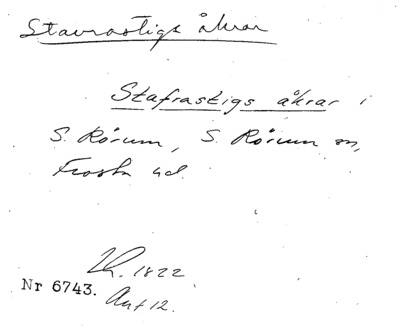 Stavrastigs åkrar
Stafrastigs åkrar i
S. Rörum, S. Rörum sn,
Frosta hd.
Lh. 1822
Nr 6743. Akt 12.